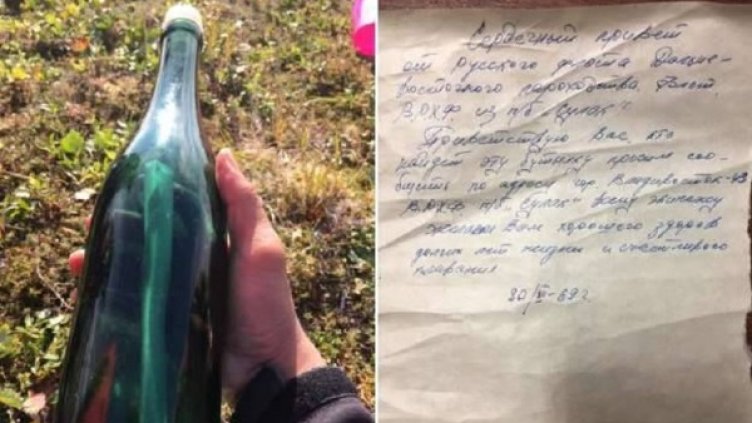 Сердечный привет
от Русского флота Дальне-
восточного пароходства.
ВРХФ из п/б "Сулак"
Приветствую Вас, кто
найдет эту бутылку просим соо-
бщить по адресу гор. Владивосток-43
ВРХФ п/б "Сулак" всему экипажу
желаем Вам хорошего здоров
долгих лет жизни и счастливого
плавания
20/VI-69 г.